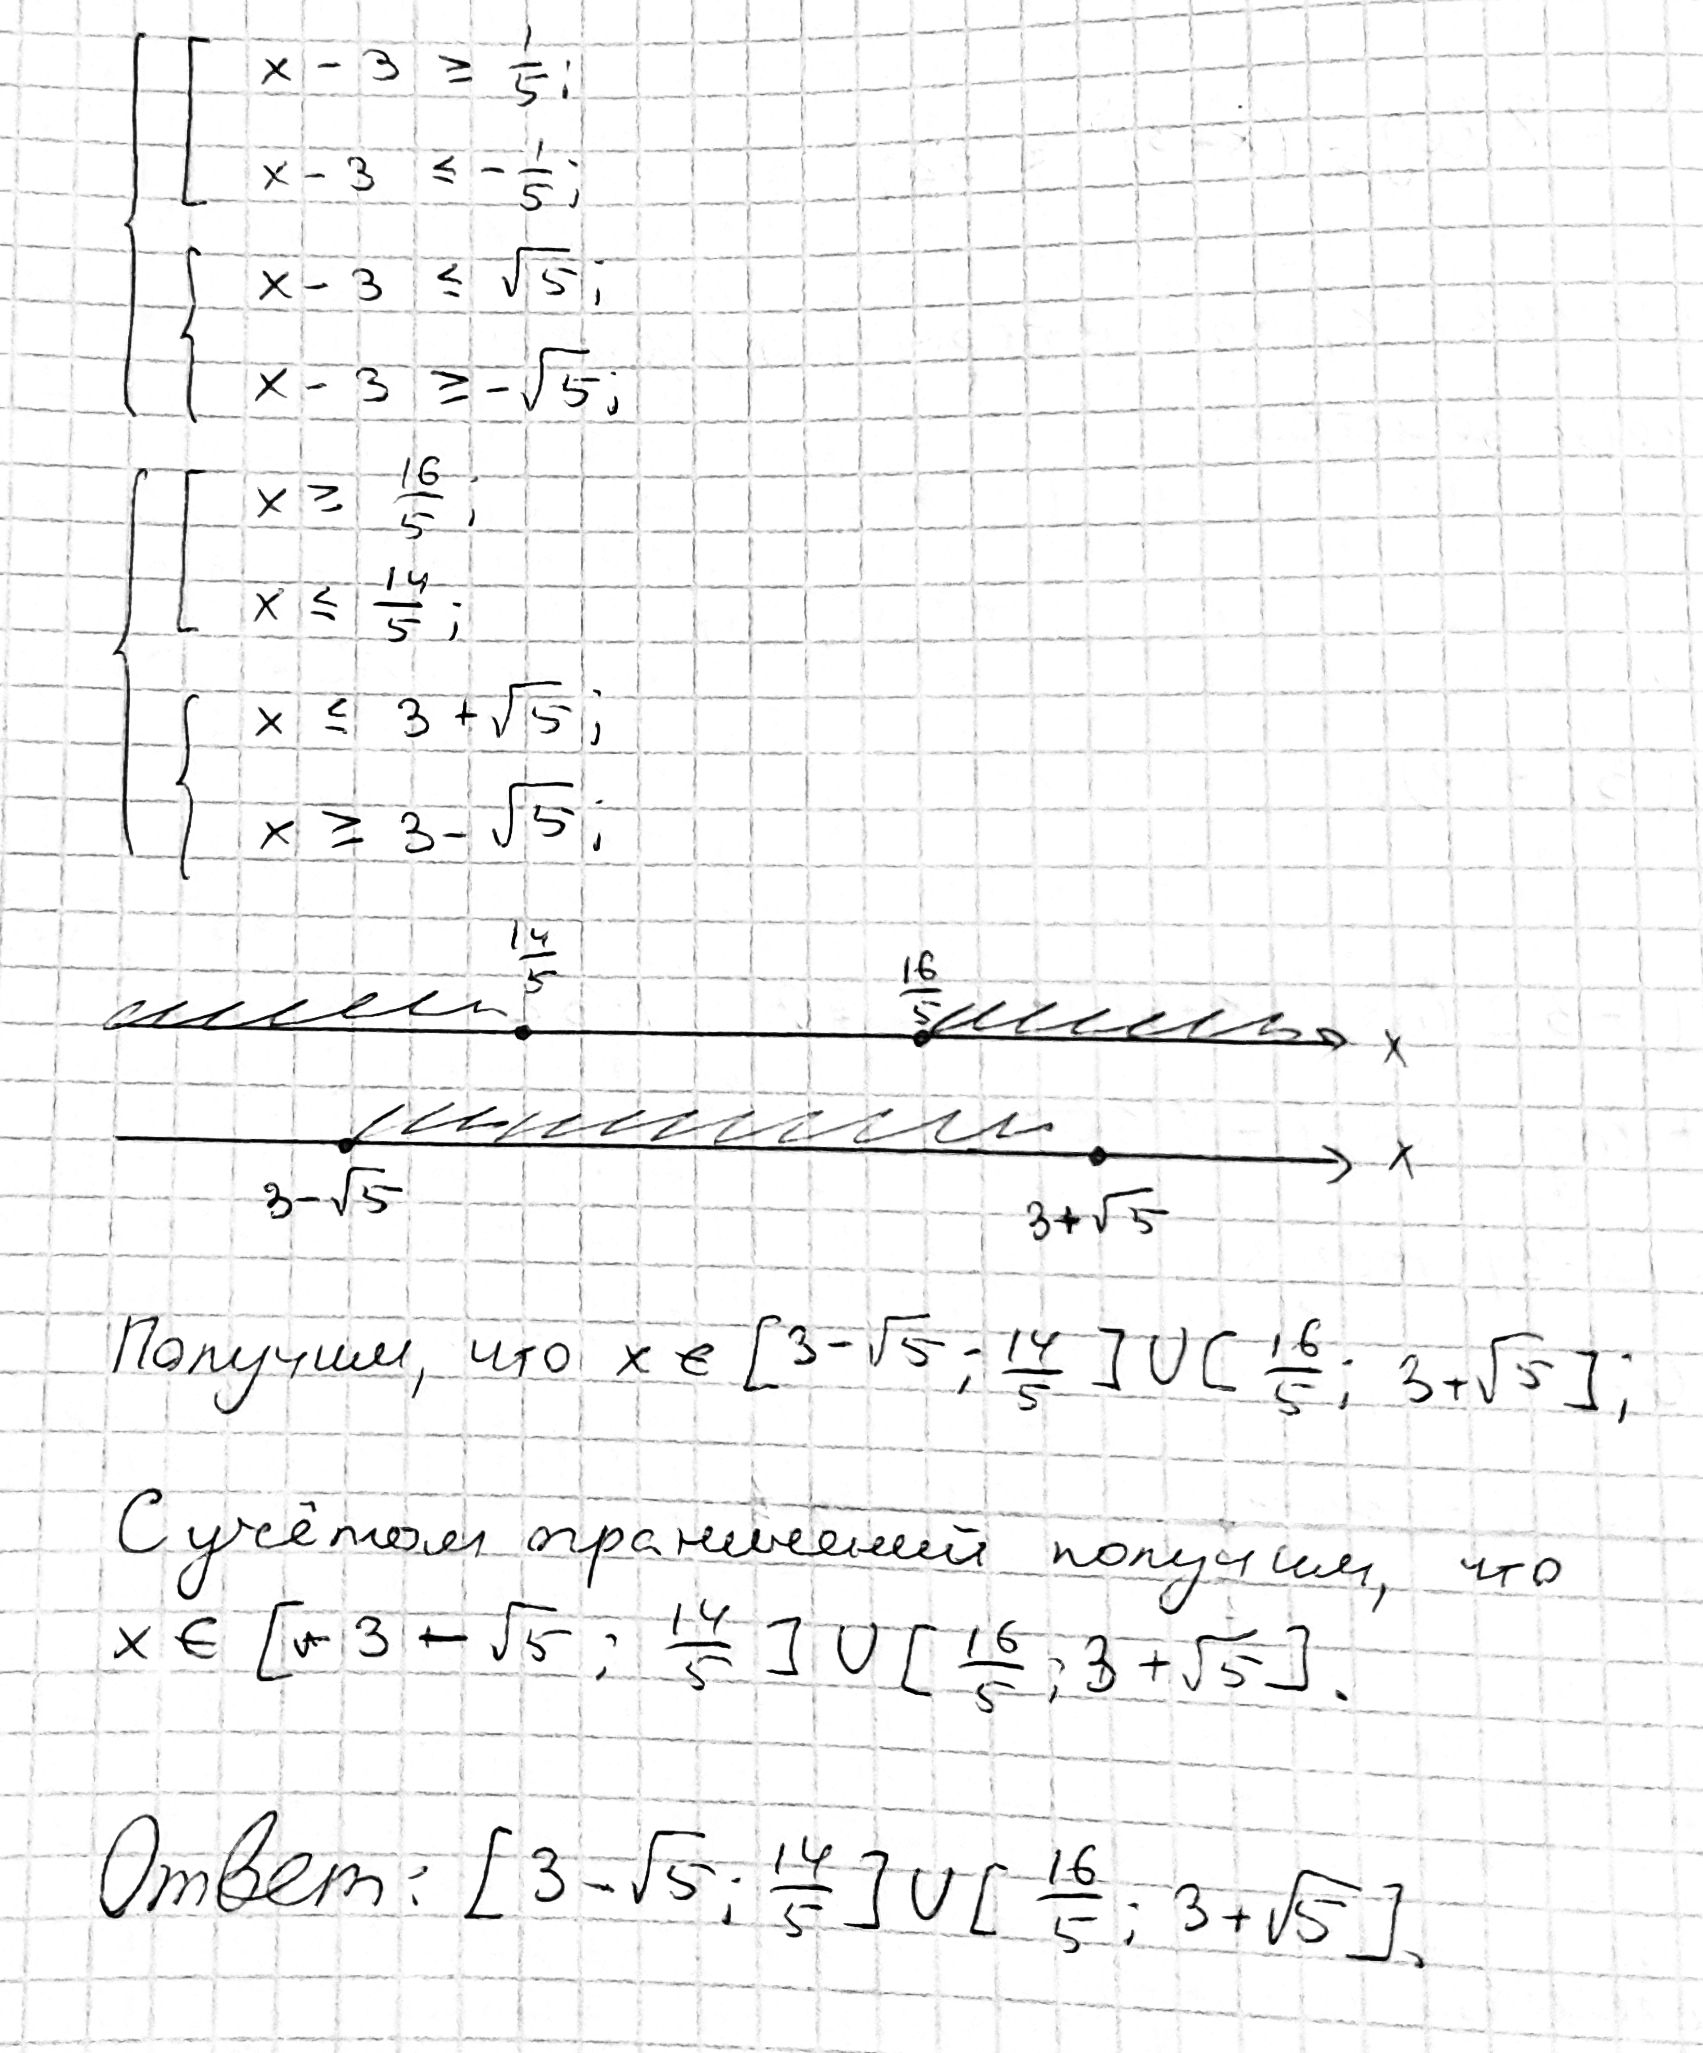 x - 3 ≥ 1/5;
x - 3 ≤ -1/5;
x - 3 ≤ √5;
x - 3 ≥ -√5;
x ≥ 16/5;
x ≤ 14/5;
x ≤ 3 + √5;
x ≥ 3 - √5;
14/5 16/5 x
3-√5 3+√5 x
Получим, что x ∈ [3-√5; 14/5] ∪ [16/5; 3+√5];
С учётом ограничений получим, что
x ∈ [3 - √5; 14/5] ∪ [16/5; 3+√5].
Ответ: [3-√5; 14/5] ∪ [16/5; 3+√5].